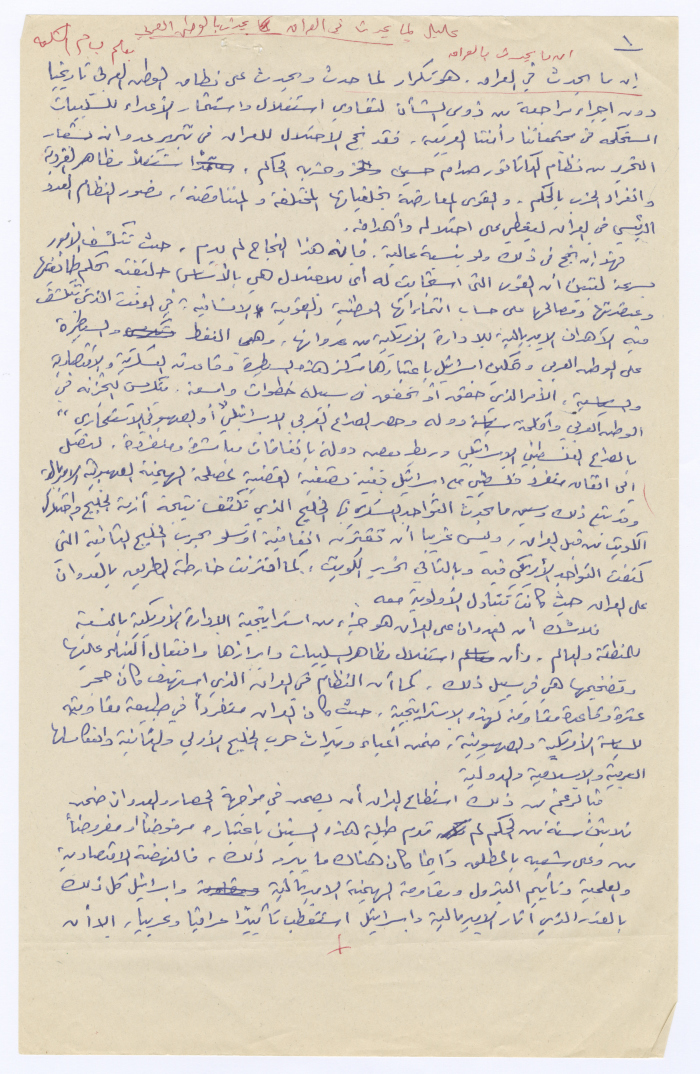 ١
تحليل لما يحدث في العراق يحدث بالوطن العربي
ان ما يحدث بالعراق
بقلم
إن ما يحدث في العراق، هو تكرار لما حدث ويحدث على نطاق الوطن العربي تاريخيا
دون اجراء مراجعة من ذوي الشأن لتفادي استغلال واستثمار الأعداء للسلبيات
المستحكمة في مجتمعاتنا وأمتنا العربية، فقد نجح الاحتلال للعراق في تمرير عدوانه بشعار
التحرر من نظام الدكتاتور صدام حسين وحزبه الحاكم، مستغلا مظاهر الفردية
وانفراد الحزب بالحكم، والقوى المعارضة بخلفياتها المختلفة والمتناقضة، مصور النظام العدو
الرئيسي في العراق ليغطي على احتلاله وأهدافه.
فهو إن نجح في ذلك ولو بنسبة عالية، فإنه هذا النجاح لم يدم، حيث تتكشف الأمور
بسرعة لتتبين أن القوى التي استجابت له أي للاحتلال هي بالأساس طائفيتها
وعنصريتها ومصالحها على حساب انتماءاتها الوطنية والقومية والانسانية، في الوقت الذي تتكشف
فيه الأهداف الامبريالية للادارة الأمريكية من عدوانها، وهي النفط والسيطرة
على الوطن العربي وتمكين اسرائيل باعتبارها مركز هذه السيطرة وقاعدته العسكرية والاقتصادية
والسياسية، الأمر الذي حققه أو تحقق في سبيله خطوات واسعة، بتكريس التجزئة في
الوطن العربي وأقلمة سياسة دوله وحصر الصراع العربي الاسرائيلي أو الصهيوني الاستعماري
بالصراع الفلسطيني الاسرائيلي وربط بعض دوله باتفاقات مباشرة ومنفردة، لتصل
إلى اتفاق منفرد فلسطيني مع اسرائيل بغية تصفية القضية لمصلحة الهيمنة الصهيونية الامبريالية
وقد تبع ذلك وسبق ما يحدث التواجد العسكري في الخليج الذي تكثف نتيجة أزمة الخليج واحتلال
الكويت من قبل العراق، وليس غريبا أن تقترن اتفاقية أوسلو بحرب الخليج الثانية التي
كثفت التواجد الأمريكي فيه وبالتالي تحرير الكويت، كما اقترنت خارطة الطريق بالعدوان
على العراق حيث كانت تتبادل الأولوية معه
فلا شك أن العدوان على العراق هو جزء من استراتيجية الادارة الأمريكية بالنسبة
للمنطقة والعالم، وأن استغلال مظاهر السلبيات وابرازها وافتعال أكثر عليها
وتضخيمها هي في سبيل ذلك، كما أن النظام في العراق الذي استهدف كان حجر
عثرة وقاعدة مقاومة لهذه الاستراتيجية، حيث كان العراق متفردا في طبيعة مقاومته
للسياسة الأمريكية والصهيونية، ضمن أعباء ومبررات حرب الخليج الأولى والثانية وانعكاساتها
العربية والاسلامية والدولية
فبالرغم من ذلك استطاع العراق أن يصمد في مواجهة الحصار والعدوان ضمن
ثلاثين سنة من الحكم لم تدم طيلة هذه السنين باعتباره مرفوضا أو مفروضا
من وعلى شعبه بالمطلق وإنما كان هناك ما يبرر ذلك، فالنهضة الاقتصادية
والعلمية وتأميم البترول ومقاومة الهيمنة الامبريالية واسرائيل كل ذلك
بالقدر الذي أثار الامبريالية واسرائيل استقطب تأييدا عراقيا وعربيا، الا أن